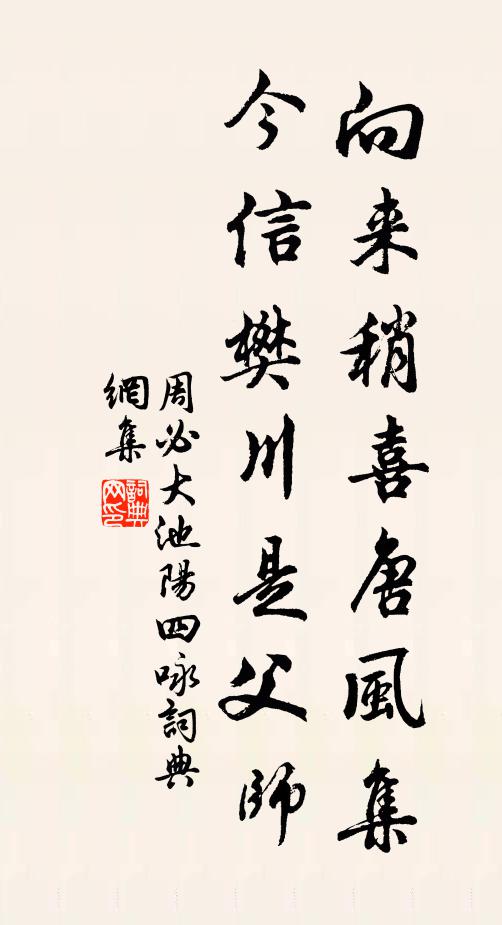 向来稍喜唐風集
今信樊川是父師
周必大池陽四咏詞典
網集
詞典
网印